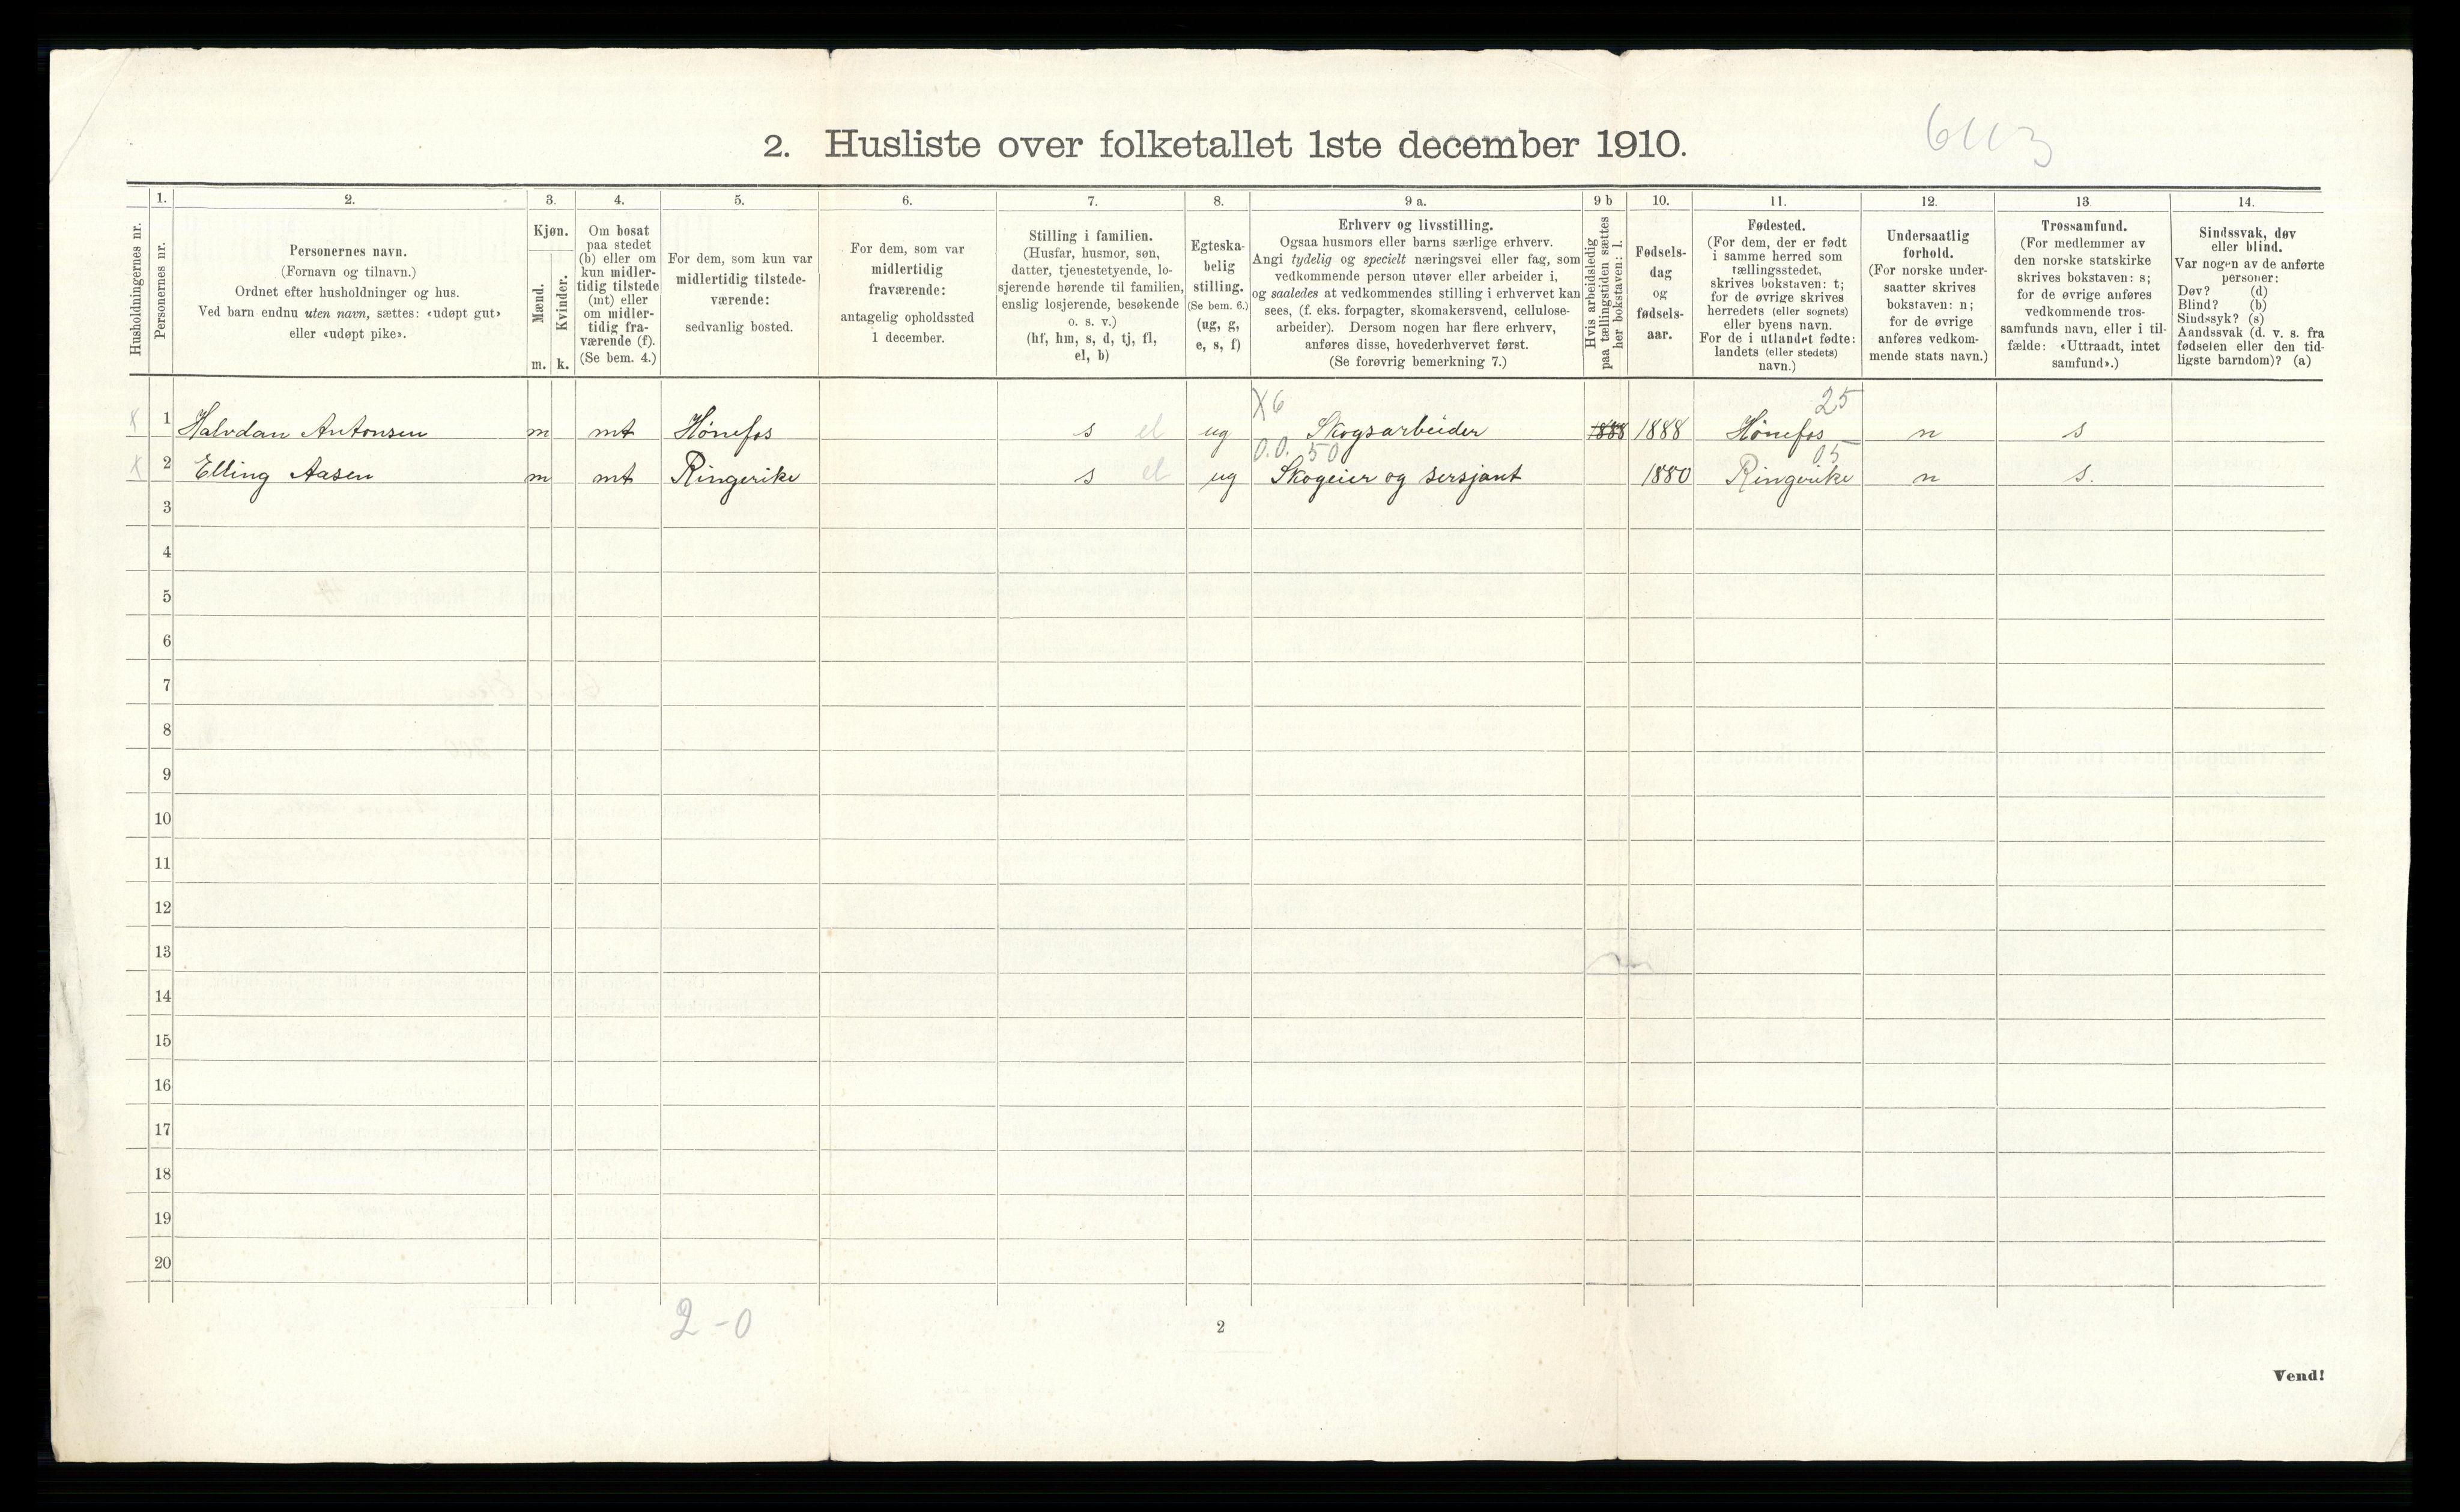 6113
2. Husliste over folketallet 1ste december 1910.
Husholdningernes nr.
1.
Personernes nr.
2.
Personernes navn.
(Fornavn og tilnavn.)
Ordnet efter husholdninger og hus.
Ved barn endnu uten navn, sættes: «udøpt gut»
eller «udøpt pike».
3.
Kjøn.
Mænd.
Kvinder.
m. k.
4.
Om bosat
paa stedet
(b) eller om
kun midler-
tidig tilstede
(mt) eller
om midler-
tidig fra-
værende (f).
(Se bem. 4.)
5.
For dem, som kun var
midlertidig tilstede-
værende:
sedvanlig bosted.
6.
For dem, som var
midlertidig
fraværende:
antagelig opholdssted
1 december.
7.
Stilling i familien.
(Husfar, husmor, søn,
datter, tjenestetyende, lo-
sjerende hørende til familien,
enslig losjerende, besøkende
o. s. v.)
(hf, hm, s, d, tj, fl,
el, b)
8.
Egteska-
belig
stilling.
(Se bem. 6.)
(ug, g,
e, s, f)
9 a.
Erhverv og livsstilling.
Ogsaa husmors eller barns særlige erhverv.
Angi tydelig og specielt næringsvei eller fag, som
vedkommende person utøver eller arbeider i,
og saaledes at vedkommendes stilling i erhvervet kan
sees, (f. eks. forpagter, skomakersvend, cellulose-
arbeider). Dersom nogen har flere erhverv,
anføres disse, hovederhvervet først.
(Se forøvrig bemerkning 7.)
9 b
Hvis arbeidsledig
paa tællingstiden sættes
her bokstaven: l.
10.
Fødsels-
dag
og
fødsels-
aar.
11.
Fødested.
(For dem, der er født
i samme herred som
tællingsstedet,
skrives bokstaven: t;
for de øvrige skrives
herredets (eller sognets)
eller byens navn.
For de i utlandet fødte:
landets (eller stedets)
navn.)
12.
Undersaatlig
forhold.
(For norske under-
saatter skrives
bokstaven: n;
for de øvrige
anføres vedkom-
mende stats navn.)
13.
Trossamfund.
(For medlemmer av
den norske statskirke
skrives bokstaven: s;
for de øvrige anføres
vedkommende tros-
samfunds navn, eller i til-
fælde: «Uttraadt, intet
samfund».)
14.
Sindssvak, døv
eller blind.
Var nogen av de anførte
personer:
Døv? (d)
Blind? (b)
Sindssyk? (s)
Aandssvak (d. v. s. fra
fødselen eller den tid-
ligste barndom)? (a)
X6 25
X 1 Halvdan Antonsen m mt Hønefos s el ug Skogsarbeider 1888 1888 Hønefos n s
0.0. 50 05
X 2 Elling Aasen m mt Ringerike s el ug Skogeier og sersjant 1880 Ringerike n s.
3
4
5
6
7
8
9
10
11
12
13
14
15
16
17
18
19
20
2-0
2
Vend!